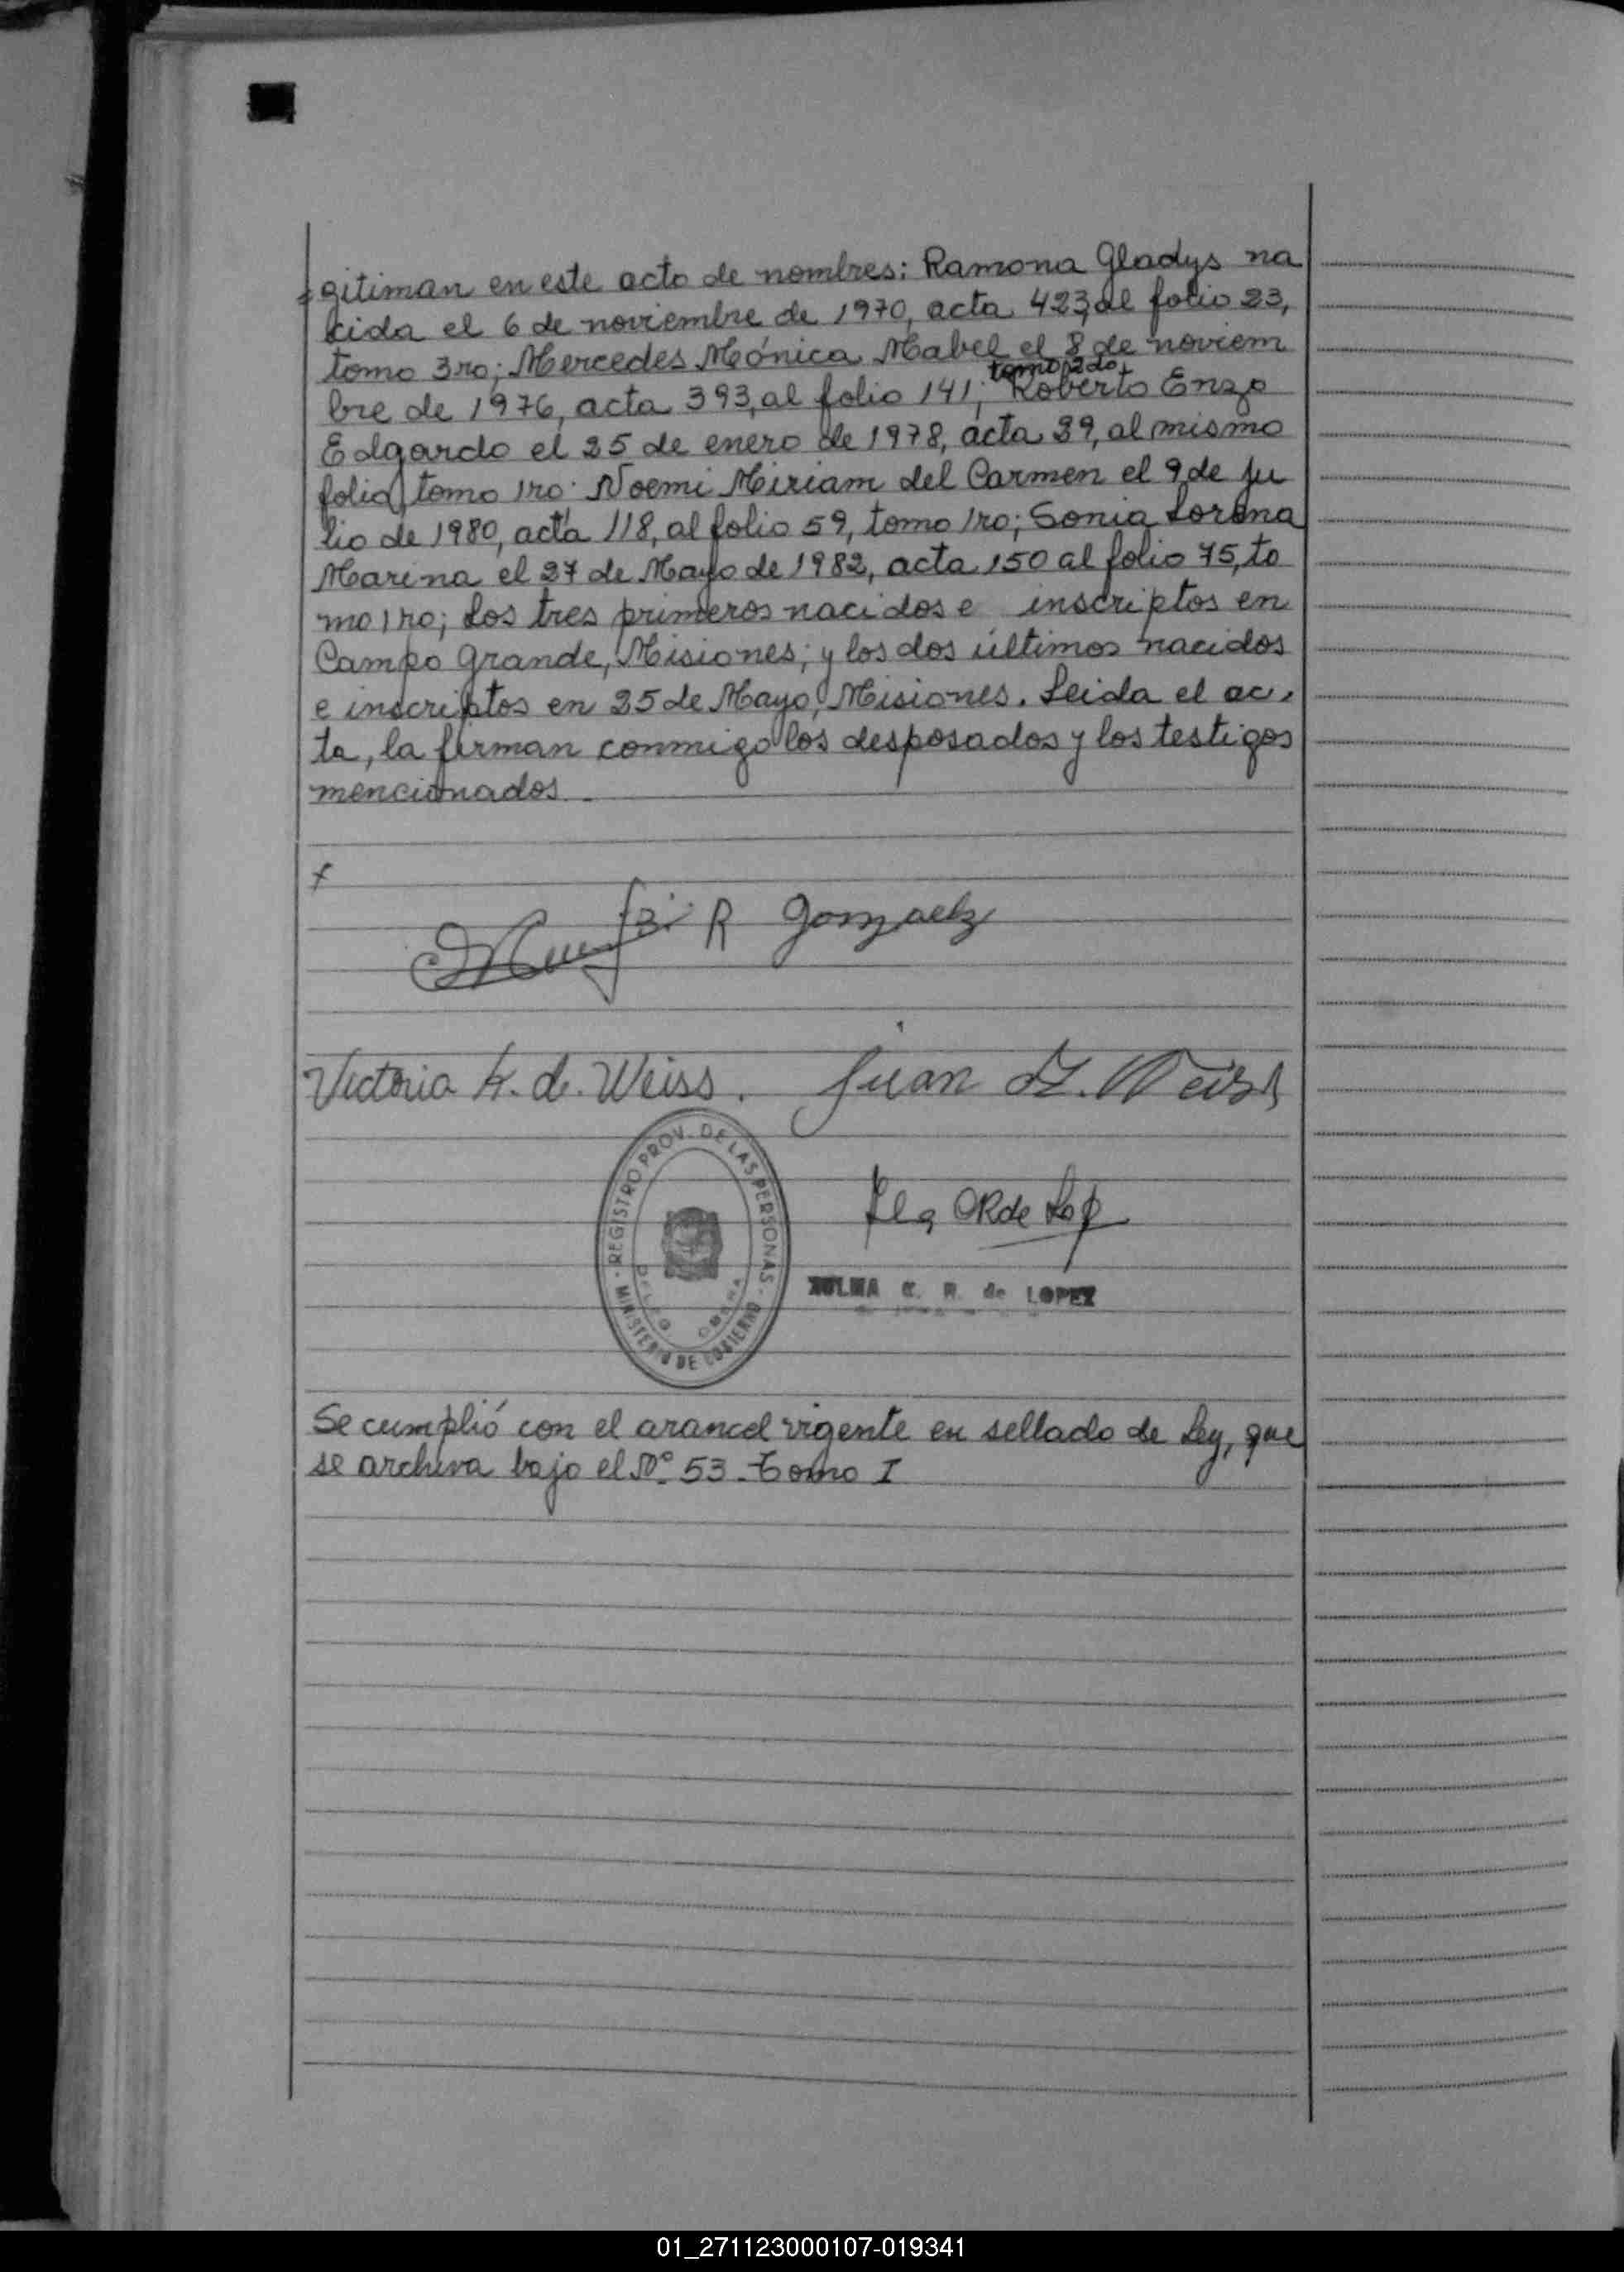 gitiman en este acto de nombres: Ramona Gladys na
cida el 6 de noviembre de 1970, acta 423, al folio 23,
tomo 3ro; Mercedes Mónica Mabel el 8 de noviem
tomo 2do,
bre de 1976, acta 393, al folio 141; Roberto Enzo
Edgardo el 25 de enero de 1978, acta 39, al mismo
folio, tomo 1ro; Noemi Miriam del Carmen el 9 de ju
lio de 1980, acta 118, al folio 59, tomo 1ro; Sonia Lorena
Marina el 27 de Mayo de 1982, acta 150 al folio 75, to
mo 1ro; Los tres primeros nacidos e inscriptos en
Campo Grande, Misiones; y los dos últimos nacidos
e inscriptos en 25 de Mayo, Misiones. Leida el ac-
ta, la firman conmigo los desposados y los testigos
mencionados.
R Gonzaelz
Victoria K. de. Weiss. Juan Weiss
REGISTRO PROV. DE LAS PERSONAS
MINISTERIO DE GOBIERNO
OBERA
de Lop
ZULMA C. R. de LOPEZ
Se cumplió con el arancel vigente en sellado de Ley, que
se archiva bajo el Nº 53 - Tomo I
01_271123000107-019341